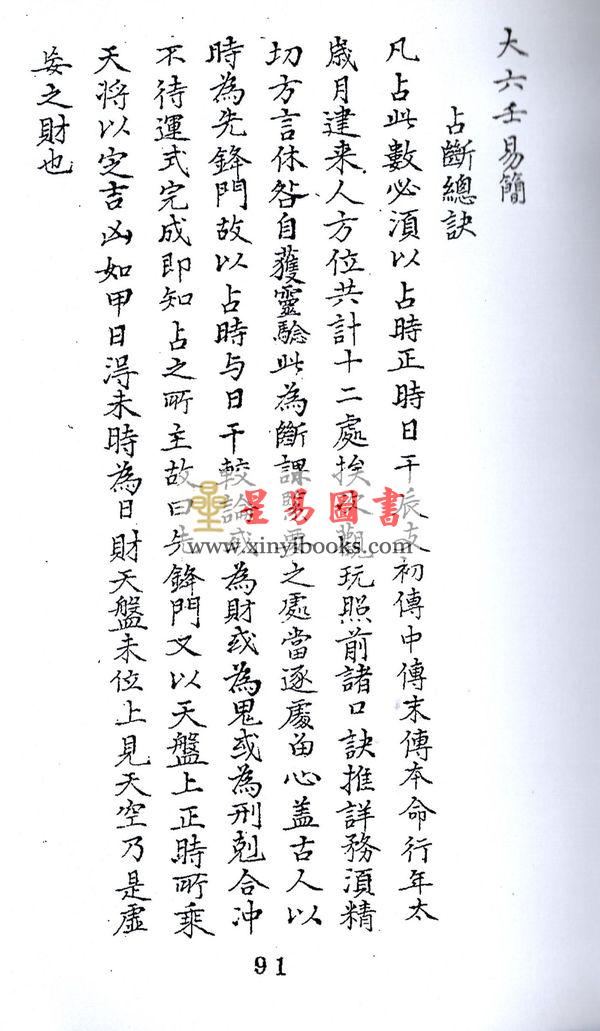 大六壬易簡
占斷總訣
凡占此數必須以占時正時日干辰支初傳中傳末傳本命行年太
歲月建来人方位共計十二處挨觀玩照前諸口訣推詳務須精
切方言休咎自獲靈驗此為斷課要之處當逐處留心盖古人以
時為先鋒門故以占時与日干較論或為財或為鬼或為刑剋合沖
不待運式完成即知占之所主故曰先鋒門又以天盤上正時所乘
天將以定吉凶如甲日得未時為日財天盤未位上見天空乃是虛
妄之財也
星易圖書
www.xinyibooks.com
91